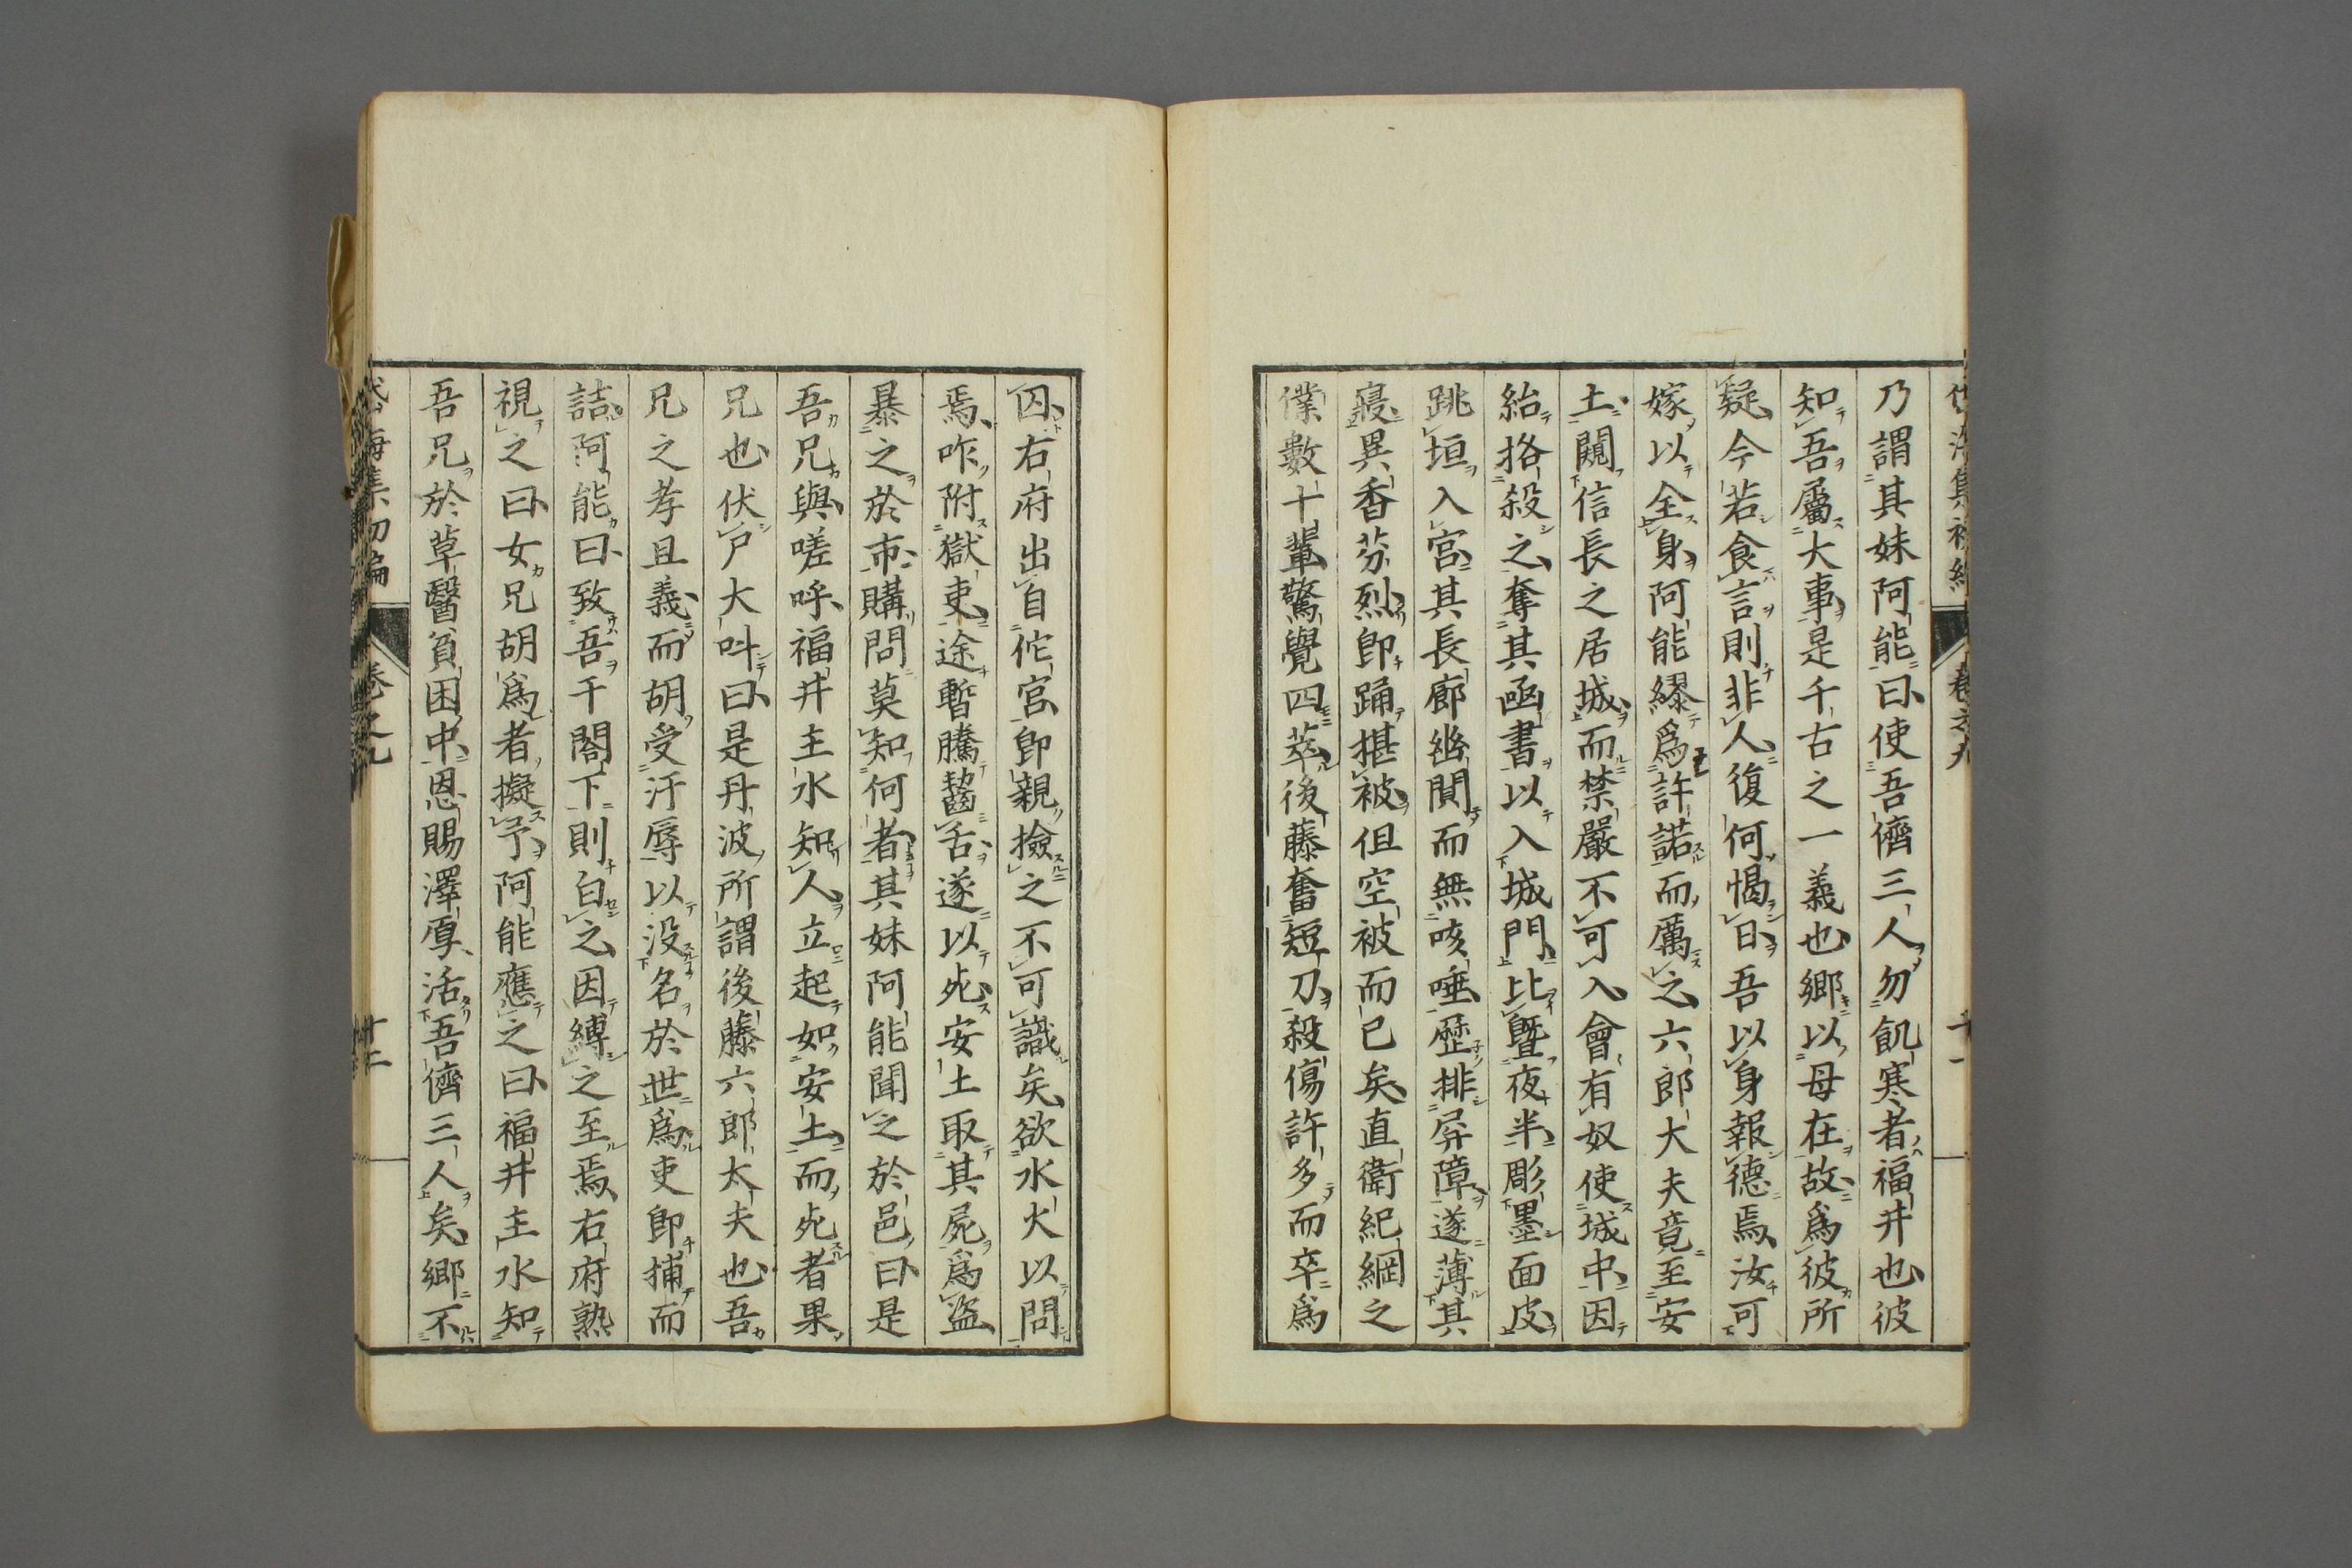 乃謂其妹阿能曰使吾儕三人勿飢寒者福井也彼
知吾屬大事是千古之一義也鄉以母在故爲彼所
疑今若食言則非人復何愒日吾以身報德焉汝可
嫁以全身阿能繆爲許諾而厲之六郎大夫竟至安
土闚信長之居城而禁嚴不可入會有奴使城中因
紿挌殺之奪其凾書以入城門比曁夜半彫墨面皮
跳垣入宮其長廊幽閴而無咳唾歷排屛障遂薄其
寢異香芬烈卽踊搓被但空被而已矣直衛紀綱之
僕數十輩驚覺四萃後藤奮短刀殺傷許多而卒爲
囚右府出自佗宮卽親撿之不可識矣欲水火以問
焉咋附獄吏途暫騰齧舌遂以死安土取其屍爲盜
暴之於市購問莫知何者其妹阿能聞之於邑曰是
吾兄與嗟呼福井主水知人立起如安土而死者果
兄也伏尸大呌曰是丹波所謂後藤六郎太夫也吾
兄之孝且義而胡受汗辱以没名於世爲吏卽捕而
詰阿能曰致吾千閤下則白之因縛之至焉右府熟
視之曰女兄胡爲者擬予阿能應之曰福井主水知
吾兄於草醫貧困中恩賜澤厚活吾儕三人矣鄉不
海集初編　卷之九　十二